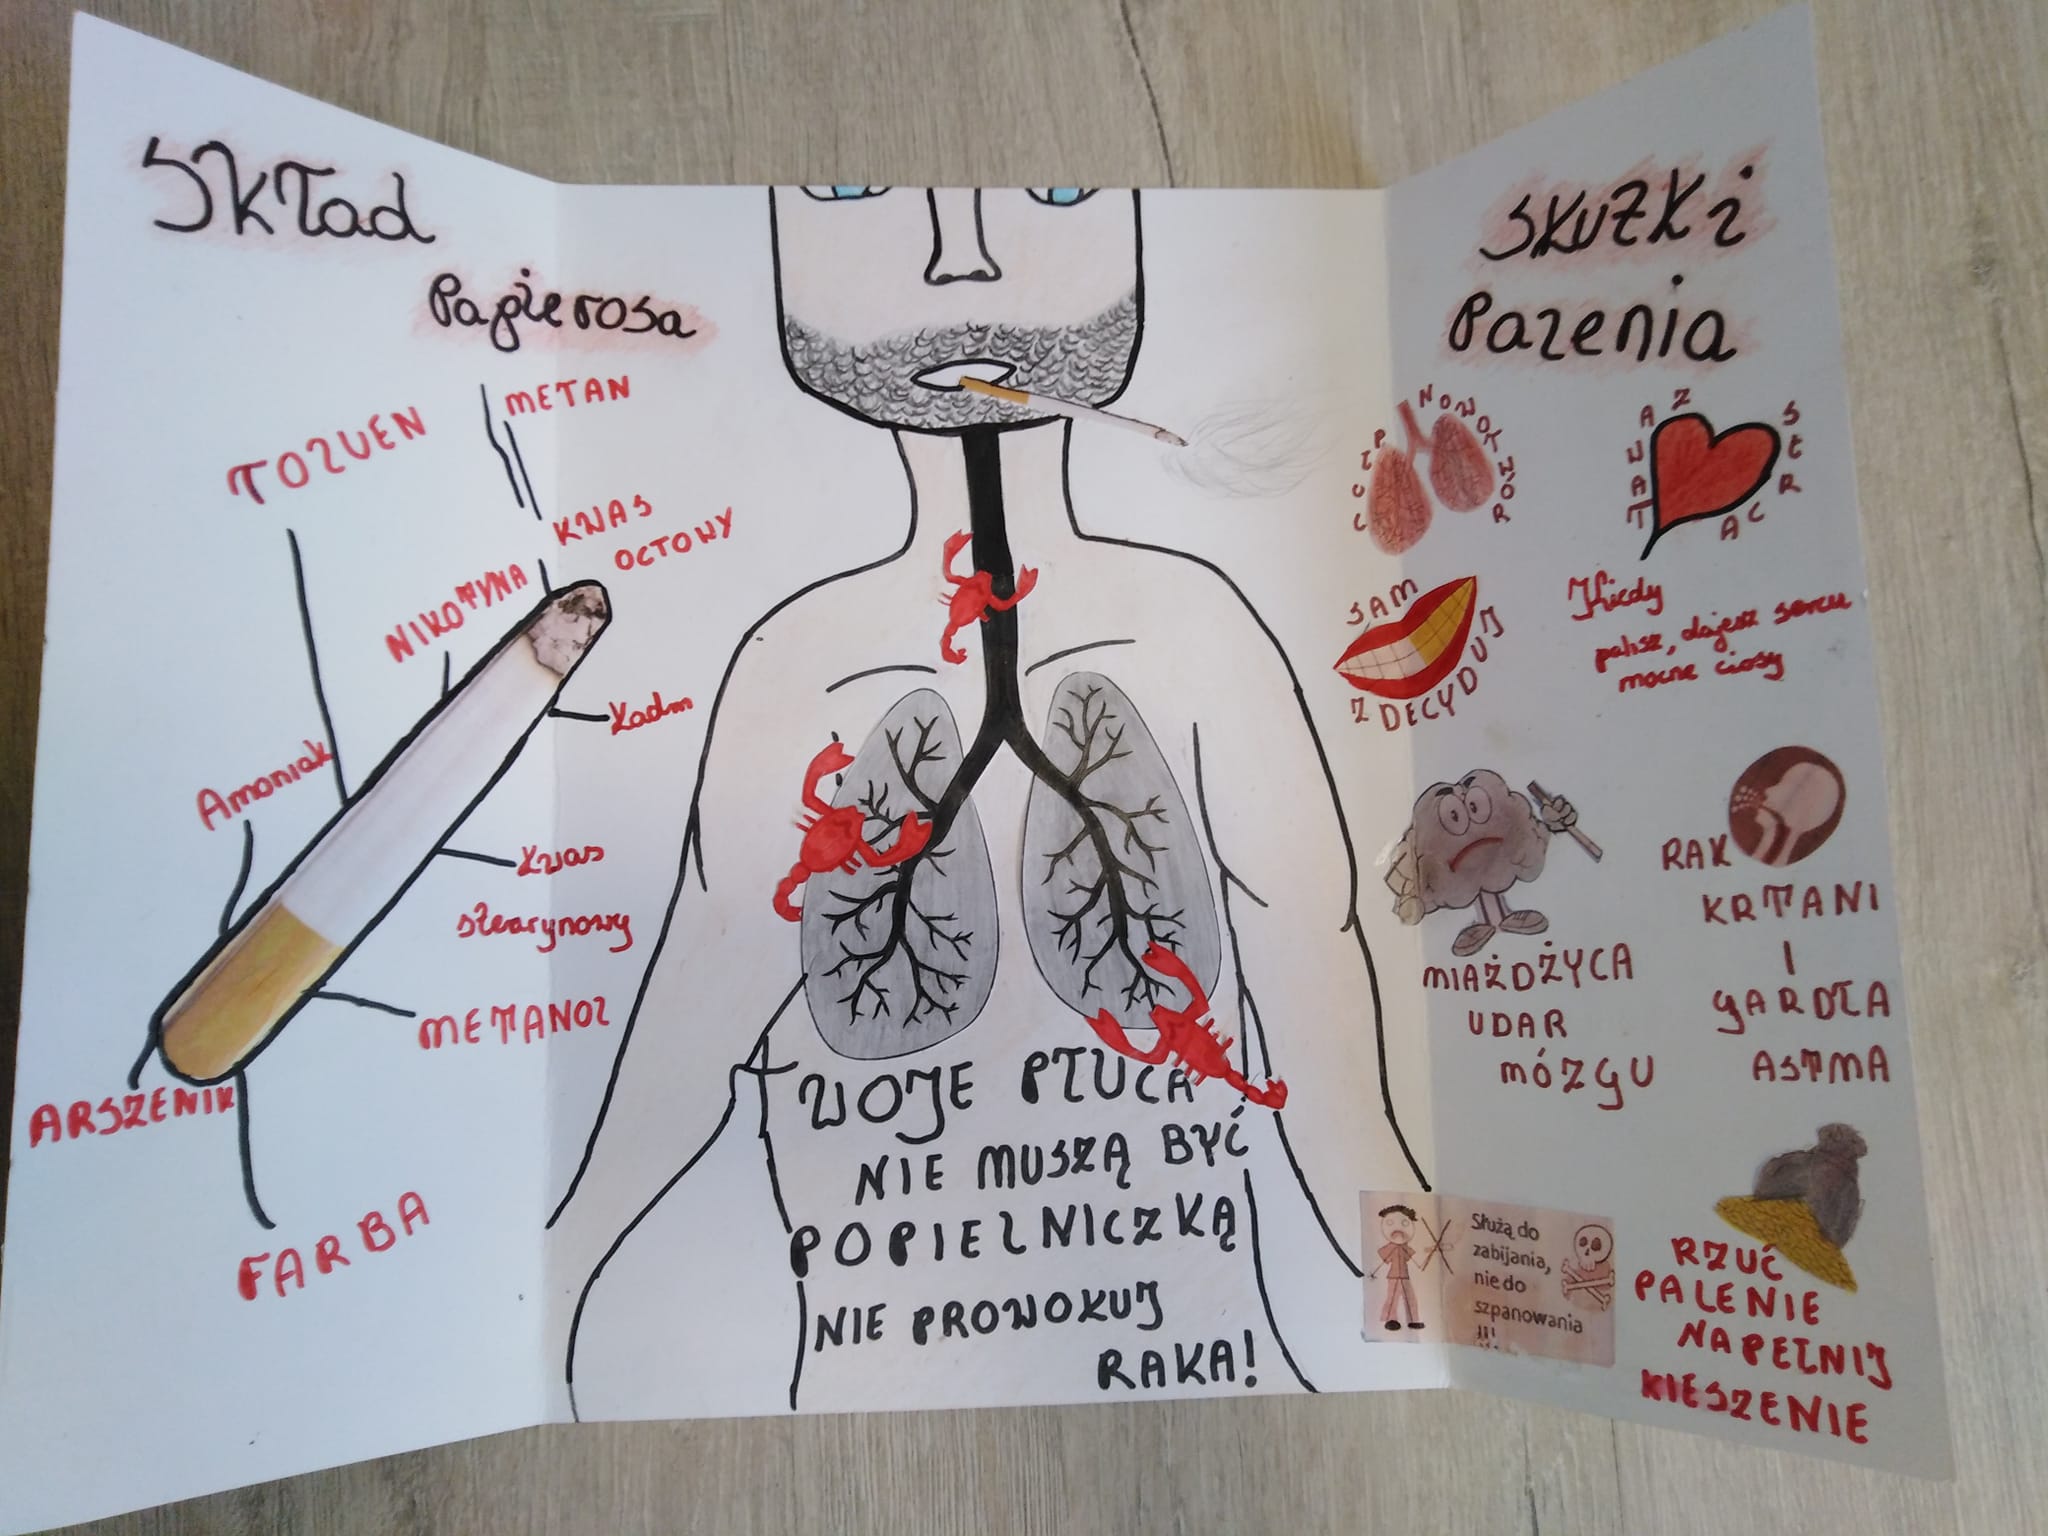 Skład
Papierosa
METAN
TOLUEN
KWAS
OCTOWY
NIKOTYNA
Kadm
Amoniak
Kwas
stearynowy
METANOL
ARSZENIK
FARBA
TWOJE PŁUCA
NIE MUSZĄ BYĆ
POPIELNICZKĄ
NIE PROWOKUJ
RAKA!
SKUTKI
Palenia
NOWOTWÓR
PŁUC
ZAWAŁ
SERCA
SAM
ZDECYDUJ
Kiedy
palisz, dajesz sercu
mocne ciosy
MIAŻDŻYCA
UDAR
MÓZGU
RAK
KRTANI
I
GARDŁA
ASTMA
Służą do
zabijania,
nie do
szpanowania
!!!
RZUĆ
PALENIE
NAPEŁNIJ
KIESZENIE